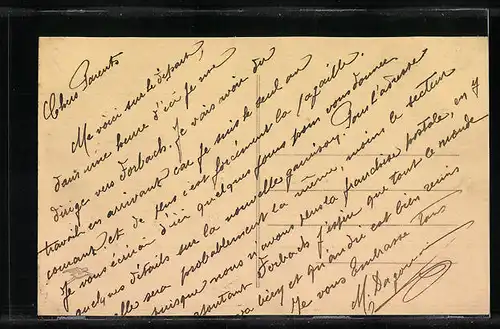 Chers Parents
Me voici sur le départ,
dans une heure d'ici je me
dirige vers Forbach. Je vais avoir du
travail en arrivant car je suis le seul au
courant et de plus c'est forcément la pagaille.
Je vous écrirai d'ici quelques jours pour vous donner
quelques détails sur la nouvelle garnison. Pour l'adresse
elle sera probablement la même, moins le secteur
puisque nous n'avons plus la franchise postale, en y
ajoutant Forbach. J'espère que tout le monde
va bien et qu'André est bien remis
Je vous Embrasse Tous